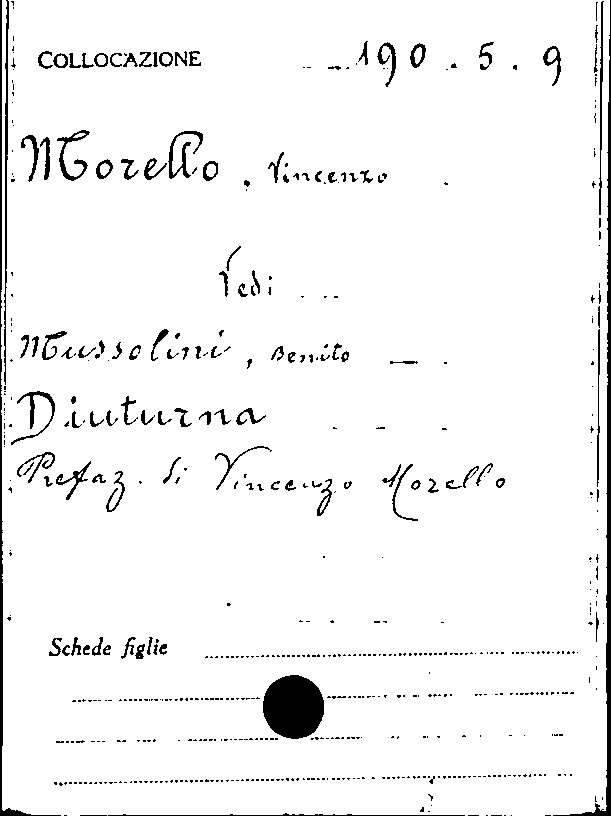 COLLOCAZIONE 190.5.9
Morello, Vincenzo
Vedi
Mussolini, Benito —
Diuturna
Prefaz. di Vincenzo Morello
Schede figlie